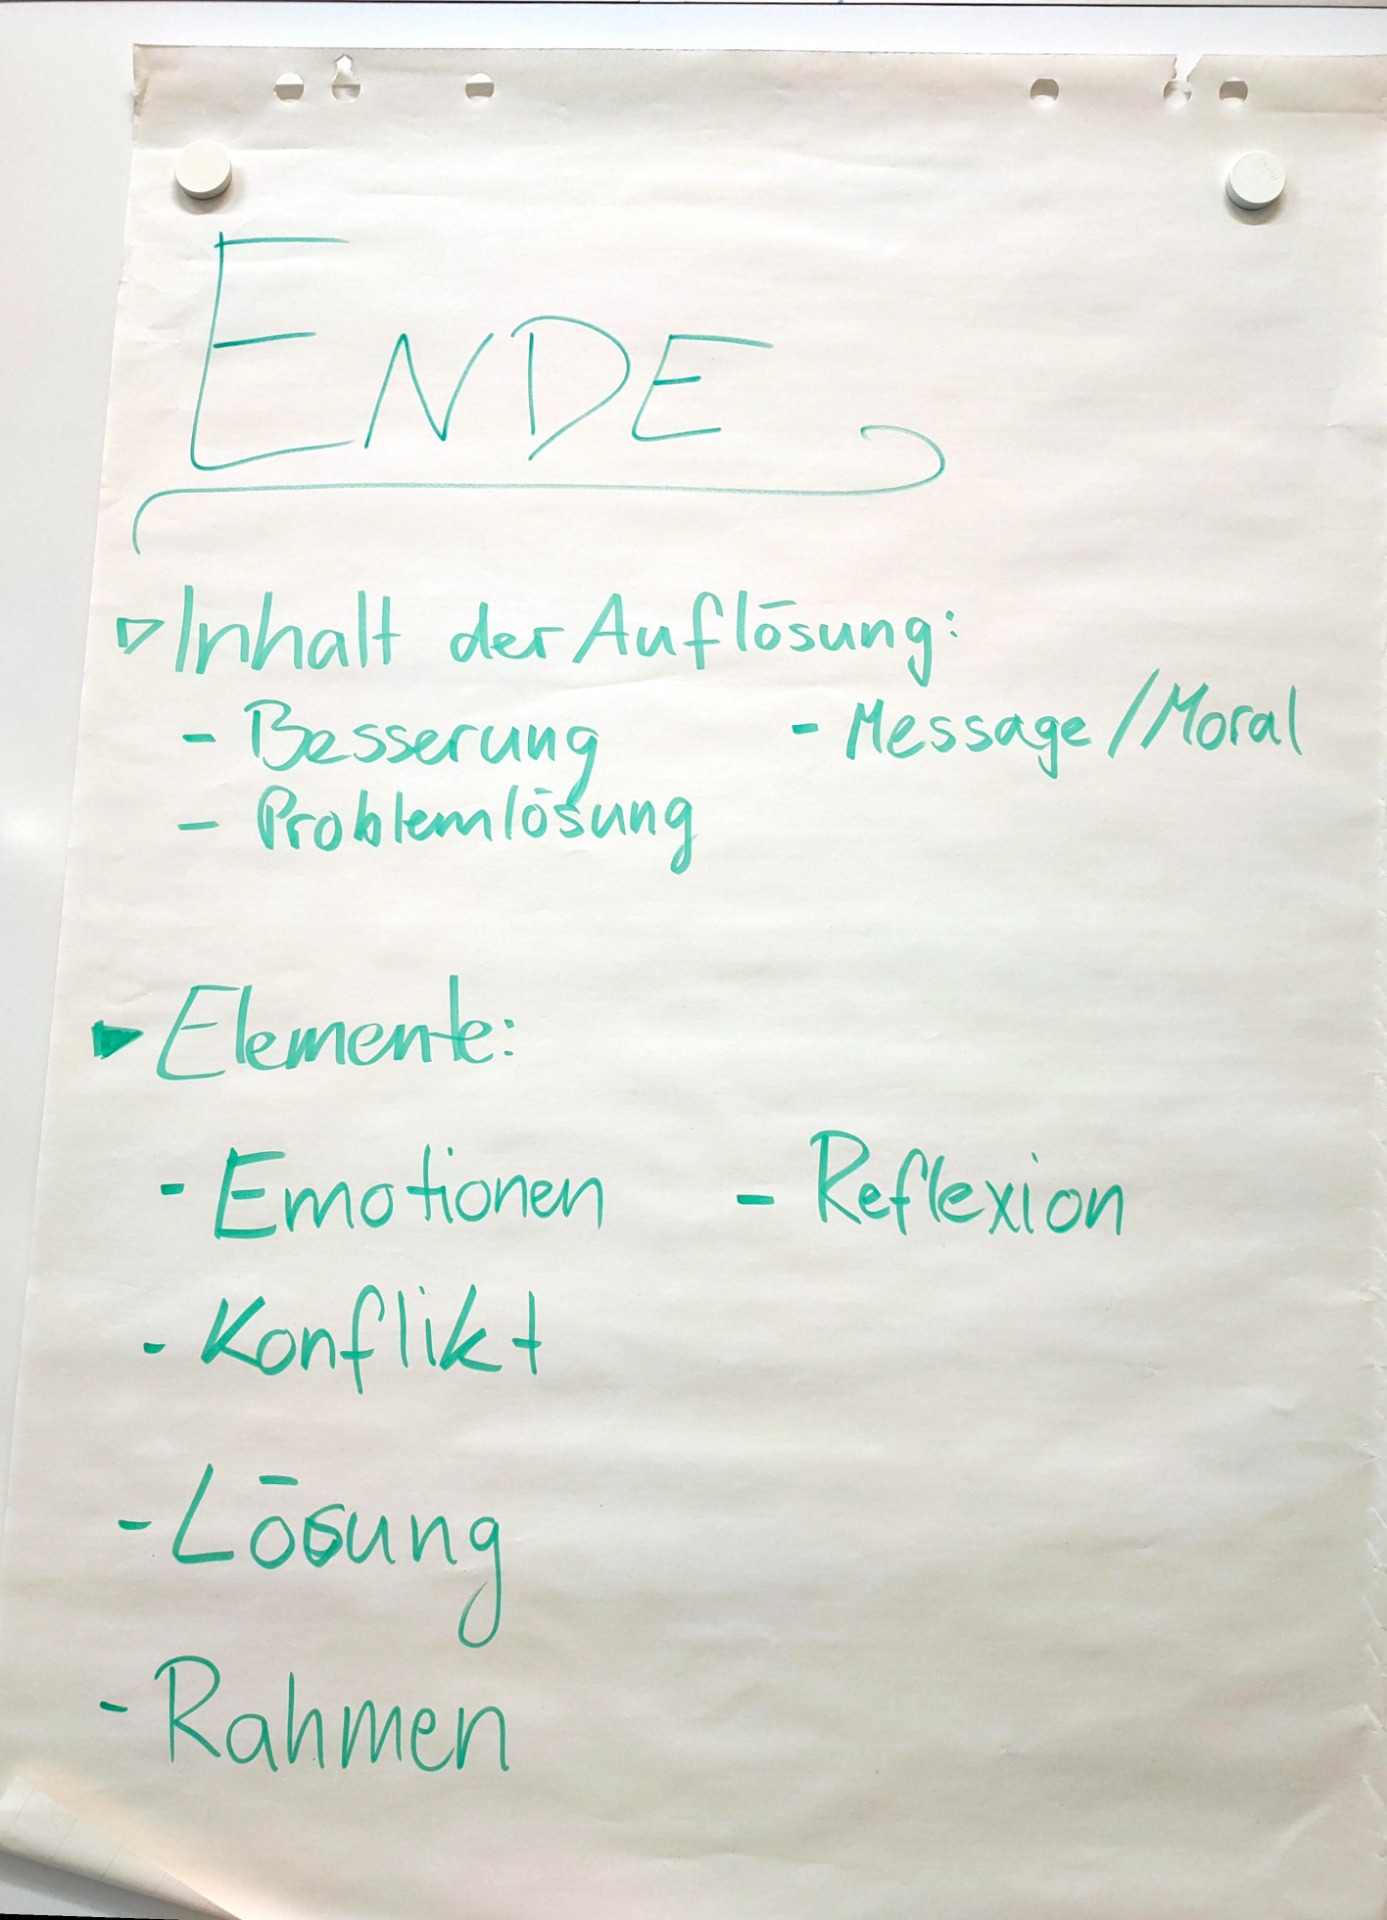 ENDE
▷ Inhalt der Auflösung:
- Besserung - Message/Moral
- Problemlösung
▶ Elemente:
- Emotionen - Reflexion
- Konflikt
- Lösung
- Rahmen